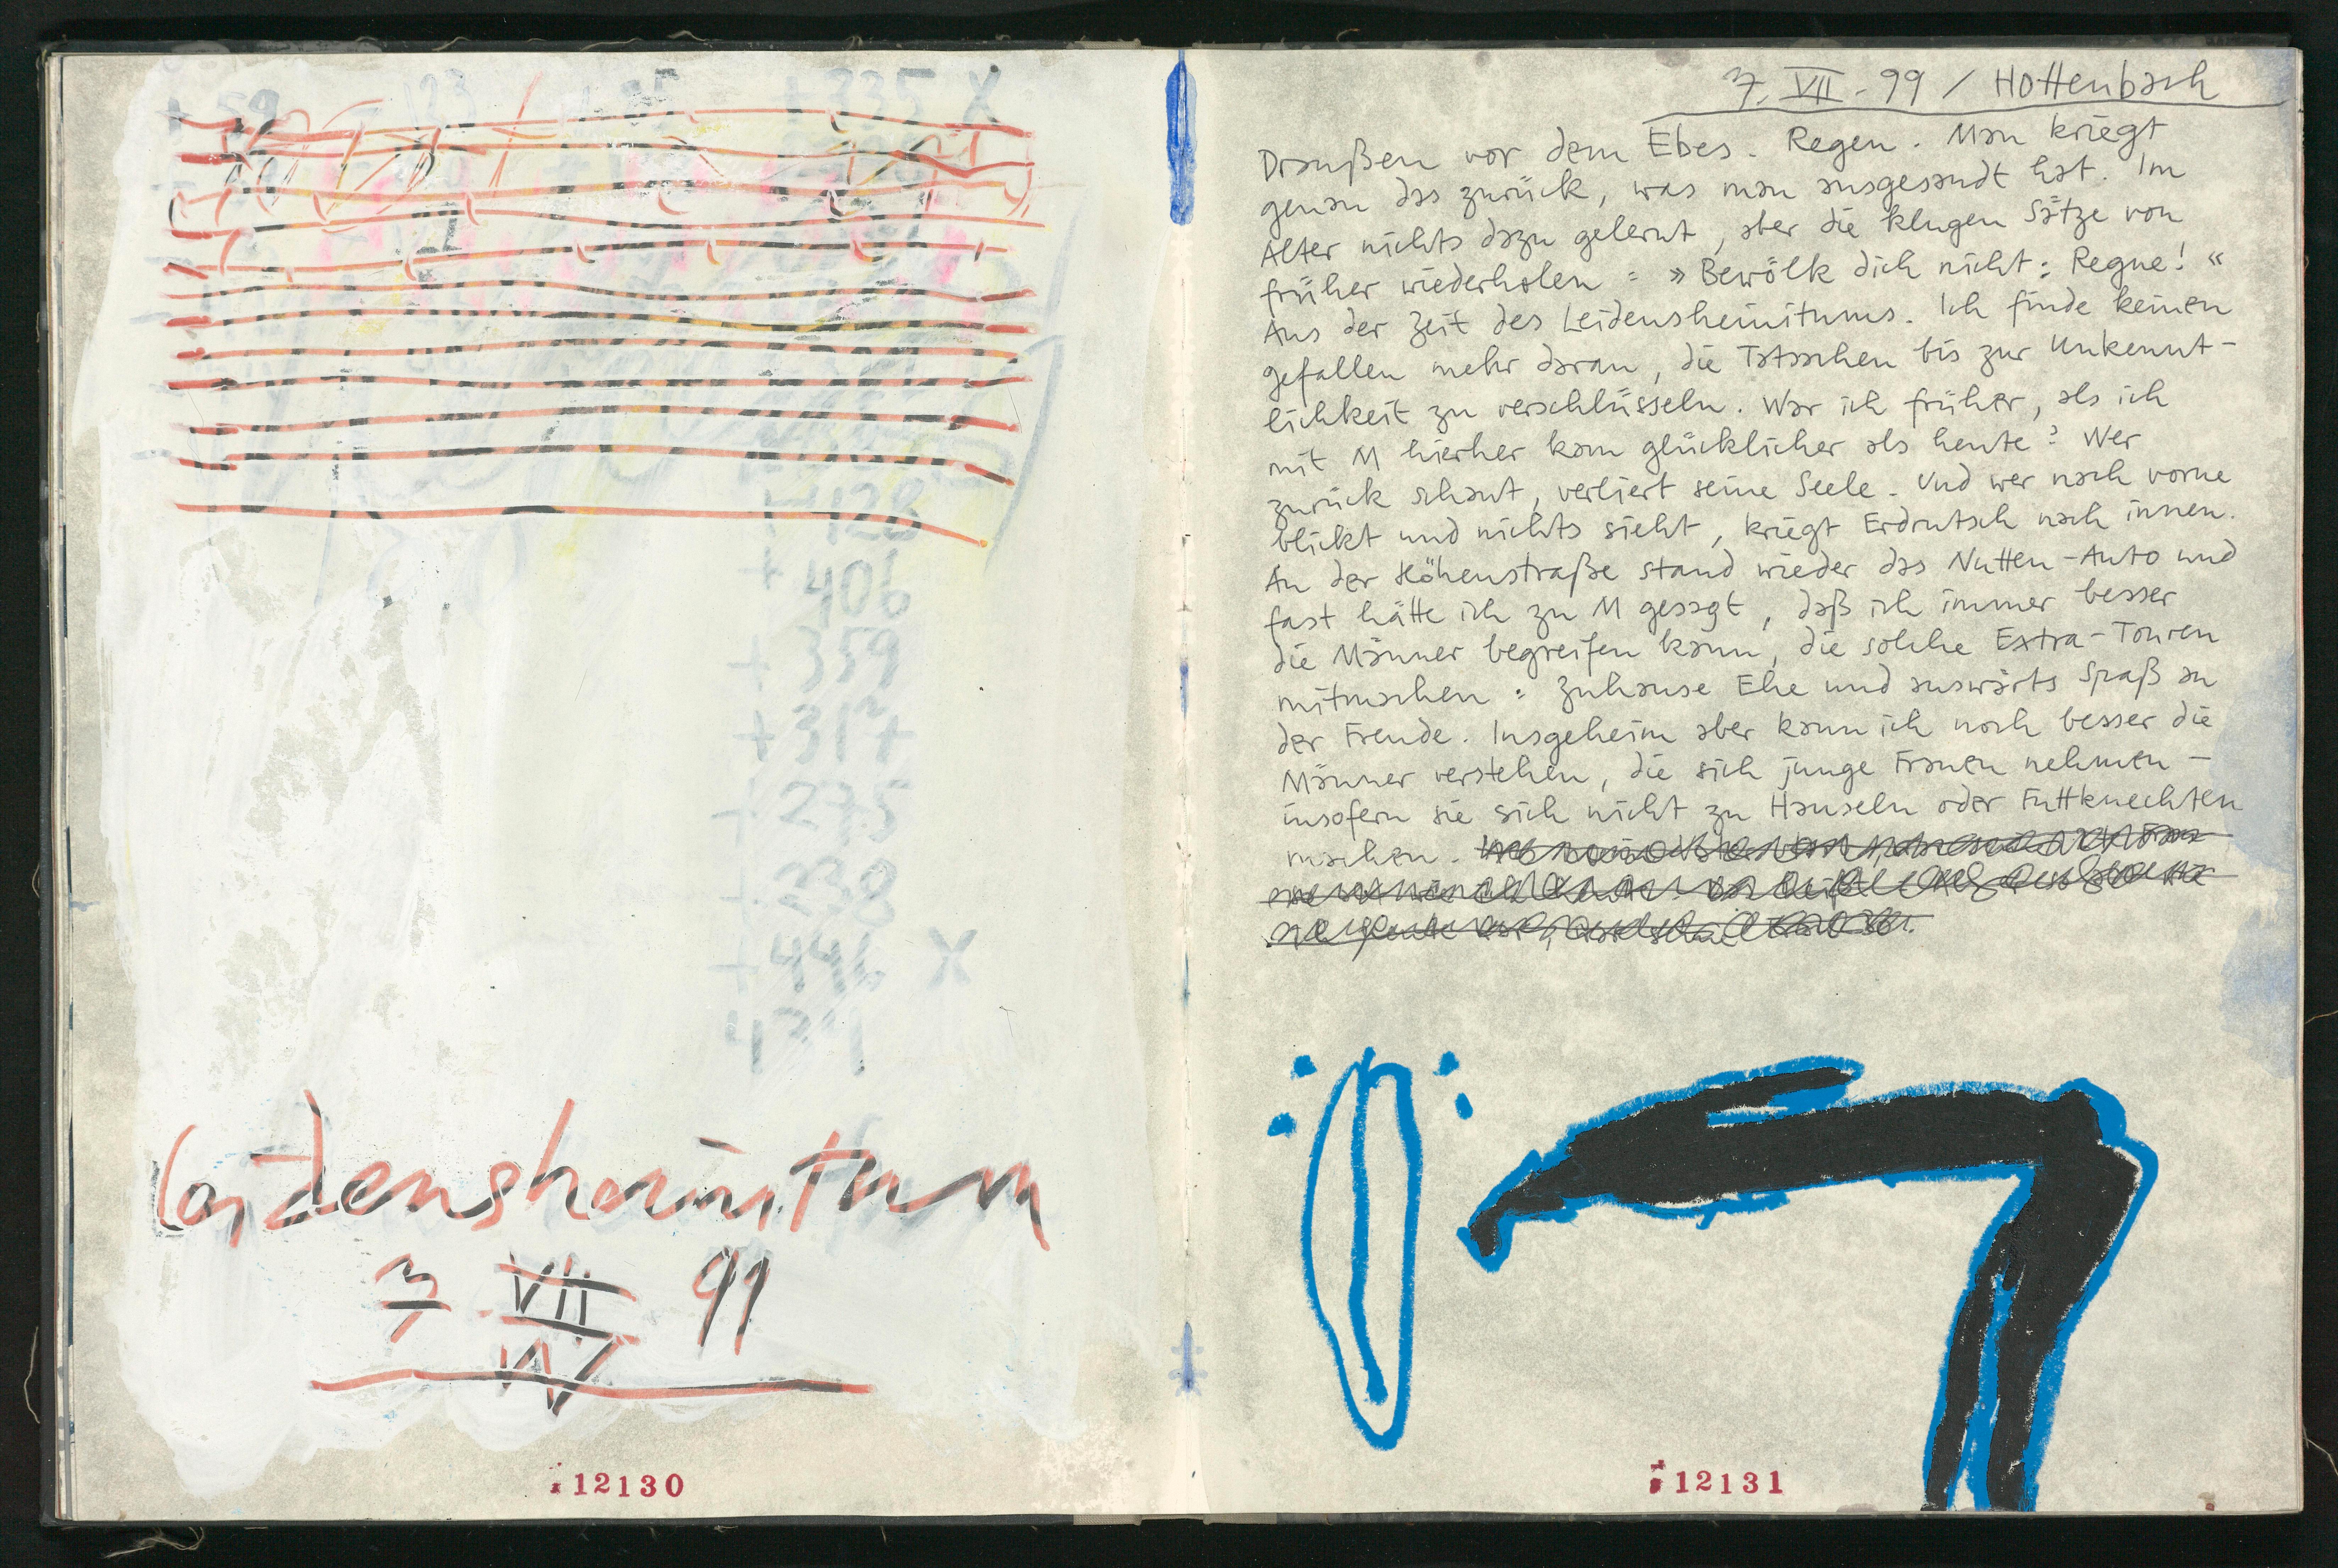 + 59
+ 335 X
+ 428
+ 406
+ 359
+ 317
+ 275
+ 238
+ 446 X
Leidensheimitum
7 VII 99
12130
7. VII - 99 / Hottenbach
Draußen vor dem Ebes. Regen. Man kriegt
genau das zurück, was man ausgesandt hat. Im
Alter nichts dazu gelernt, aber die klugen Sätze von
früher wiederholen: »Bewölk dich nicht: Regne!«
Aus der Zeit des Leidensheimitums. Ich finde keinen
gefallen mehr daran, die Tatsachen bis zur Unkennt-
lichkeit zu verschlüsseln. War ich früher, als ich
mit M hierher kam glücklicher als heute? Wer
zurück schaut, verliert seine Seele. Und wer nach vorne
blickt und nichts sieht, kriegt Erdrutsch nach innen.
An der Höhenstraße stand wieder das Nutten-Auto und
fast hätte ich zu M gesagt, daß ich immer besser
die Männer begreifen kann, die solche Extra-Touren
mitmachen: Zuhause Ehe und auswärts Spaß an
der Freude. Insgeheim aber kann ich noch besser die
Männer verstehen, die sich junge Frauen nehmen -
insofern sie sich nicht zu Hanseln oder Futtknechten
machen.
12131